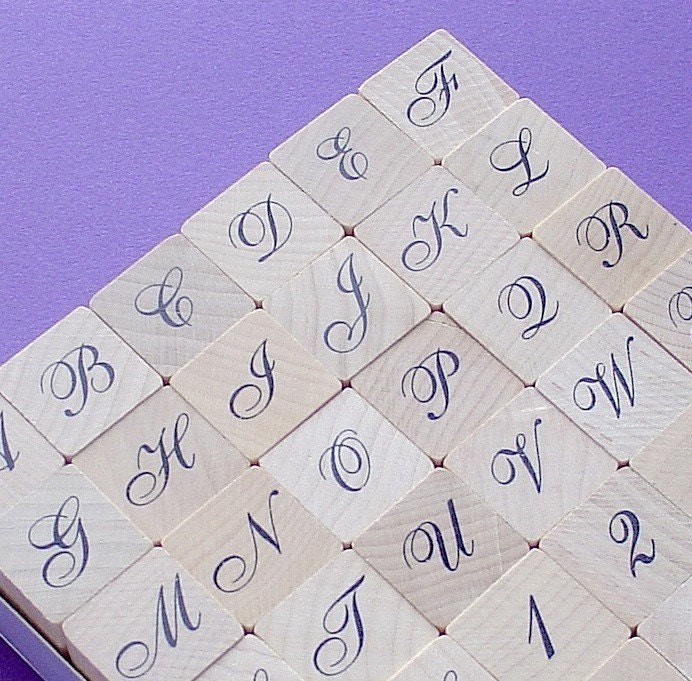 A B C D E F
G H I J K L
M N O P Q R
T U V W
1 2